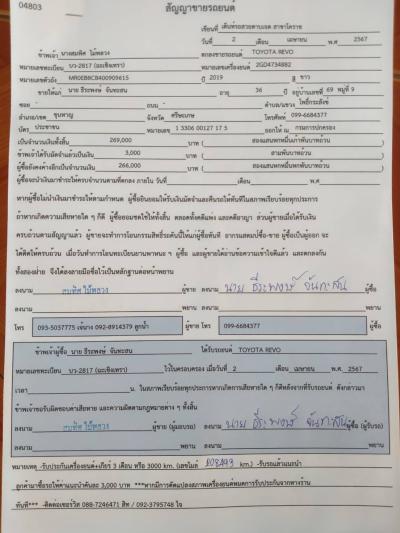 04803
สัญญาขายรถยนต์
เขียนที่ เต็นท์รถสวยตาบเจต สาขาโคราช
วันที่ 2 เดือน เมษายน พ.ศ 2567
ข้าพเจ้า นางสมพิศ ไม้หวง ตกลงขายรถยนต์ TOYOTA REVO
หมายเลขทะเบียน บว-2817 (ฉะเชิงเทรา) หมายเลขเครื่องยนต์ 2GD4734882
หมายเลขตัวถัง MR0EB8CB400909615 ปี 2019 สี ขาว
ขายให้แก่ นาย ธีระพงษ์ จันทะสน อายุ 36 ปี อยู่บ้านเลขที่ 69 หมู่ที่ 9
ซอย - ถนน - ตำบล/แขวง โพธิ์กระสังข์
อำเภอ/เขต ขุนหาญ จังหวัด ศรีษะเกษ โทรศัพท์ 099-6684377
บัตร ประชาชน หมายเลข 1 3306 00127 17 5 ออกให้ ณ กรมการปกครอง
เป็นจำนวนเงินทั้งสิ้น 269,000 บาท ( สองแสนหกหมื่นเก้าพันบาทถ้วน )
ข้าพเจ้าได้รับมัดจำแล้วเป็นเงิน 3,000 บาท ( สามพันบาทถ้วน )
ผู้ซื้อยังคงค้างอีกเป็นจำนวน 266,000 บาท ( สองแสนหกหมื่นหกพันบาทถ้วน )
ผู้ซื้อจะนำเงินมาชำระให้ครบจำนวนตามที่ตกลง ภายใน วันที่ เดือน พ.ศ
หากผู้ซื้อไม่นำเงินมาชำระให้ตามกำหนด ผู้ซื้อยินยอมให้ริบเงินมัดจำและคืนรถให้ทันทีในสภาพเรียบร้อยทุกประการ
ถ้าหากเกิดความเสียหายใด ๆ ก็ดี ผู้ซื้อยอมชดใช้ให้ทั้งสิ้น ตลอดทั้งคดีแพ่ง และคดีอาญา ส่วนผู้ขายเมื่อได้รับเงิน
ครบถ้วนตามสัญญาแล้ว ผู้ขายจะทำการโอนกรรมสิทธิ์รถคันนี้ให้แก่ผู้ซื้อทันที อากรแสตมป์ซื้อ-ขาย ผู้ซื้อเป็นผู้ออก จะ
ได้คิดให้ครบถ้วน เมื่อวันทำการโอนทะเบียนยานพาหนะ ๆ ผู้ซื้อ และผู้ขายได้อ่านข้อความเข้าใจดีแล้ว และตกลงกัน
ทั้งสองฝ่าย จึงได้ลงลายมือชื่อไว้เป็นหลักฐานต่อหน้าพยาน
ลงนาม สมพิศ ไม้หวง ผู้ขาย ลงนาม นาย ธีระพงษ์ จันทะสน ผู้ซื้อ
ลงนาม พยาน ลงนาม พยาน
โทร 093-5037775 เจ้นาง 092-8914379 ลูกน้ำ ผู้ขาย โทร 099-6684377 ผู้ซื้อ
ข้าพเจ้าผู้ซื้อ นาย ธีระพงษ์ จันทะสน ได้รับรถยนต์ TOYOTA REVO
หมายเลขทะเบียน บว-2817 (ฉะเชิงเทรา) ไว้ในครอบครอง เมื่อวันที่ 2 เดือน เมษายน พ.ศ 2567
เวลา น. ในสภาพเรียบร้อยทุกประการหากเกิดการเสียหายใด ๆ ก็ดีหลังจากที่รับรถยนต์ ดังกล่าวมา
ข้าพเจ้าขอรับผิดชอบค่าเสียหาย และความผิดตามกฎหมายต่าง ๆ ทั้งสิ้น
ลงนาม สมพิศ ไม้หวง ผู้ขาย (ผู้มอบรถ) ลงนาม นาย ธีระพงษ์ จันทะสน ผู้ซื้อ (ผู้รับรถ)
ลงนาม พยาน ลงนาม พยาน
หมายเหตุ -รับประกันเครื่องยนต์+เกียร์ 3 เดือน หรือ 3000 km. (เลขไมล์ km.) -รับรถแล้วแนะนำ
ลูกค้ามาซื้อรถให้ค่าแนะนำคันละ 3,000 บาท ***หากมีการดัดแปลงสภาพเครื่องยนต์หมดการรับประกันจากทางร้าน
ทันที*** -ติดต่อเซอร์วิส 088-7246471 สิท / 092-3795748 ใจ